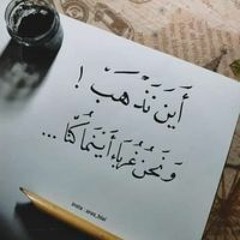 أَينَ نَذْهَبْ !
وَنَحنُ غُرَبَاءُ أَينَمَا كُنَّا ...